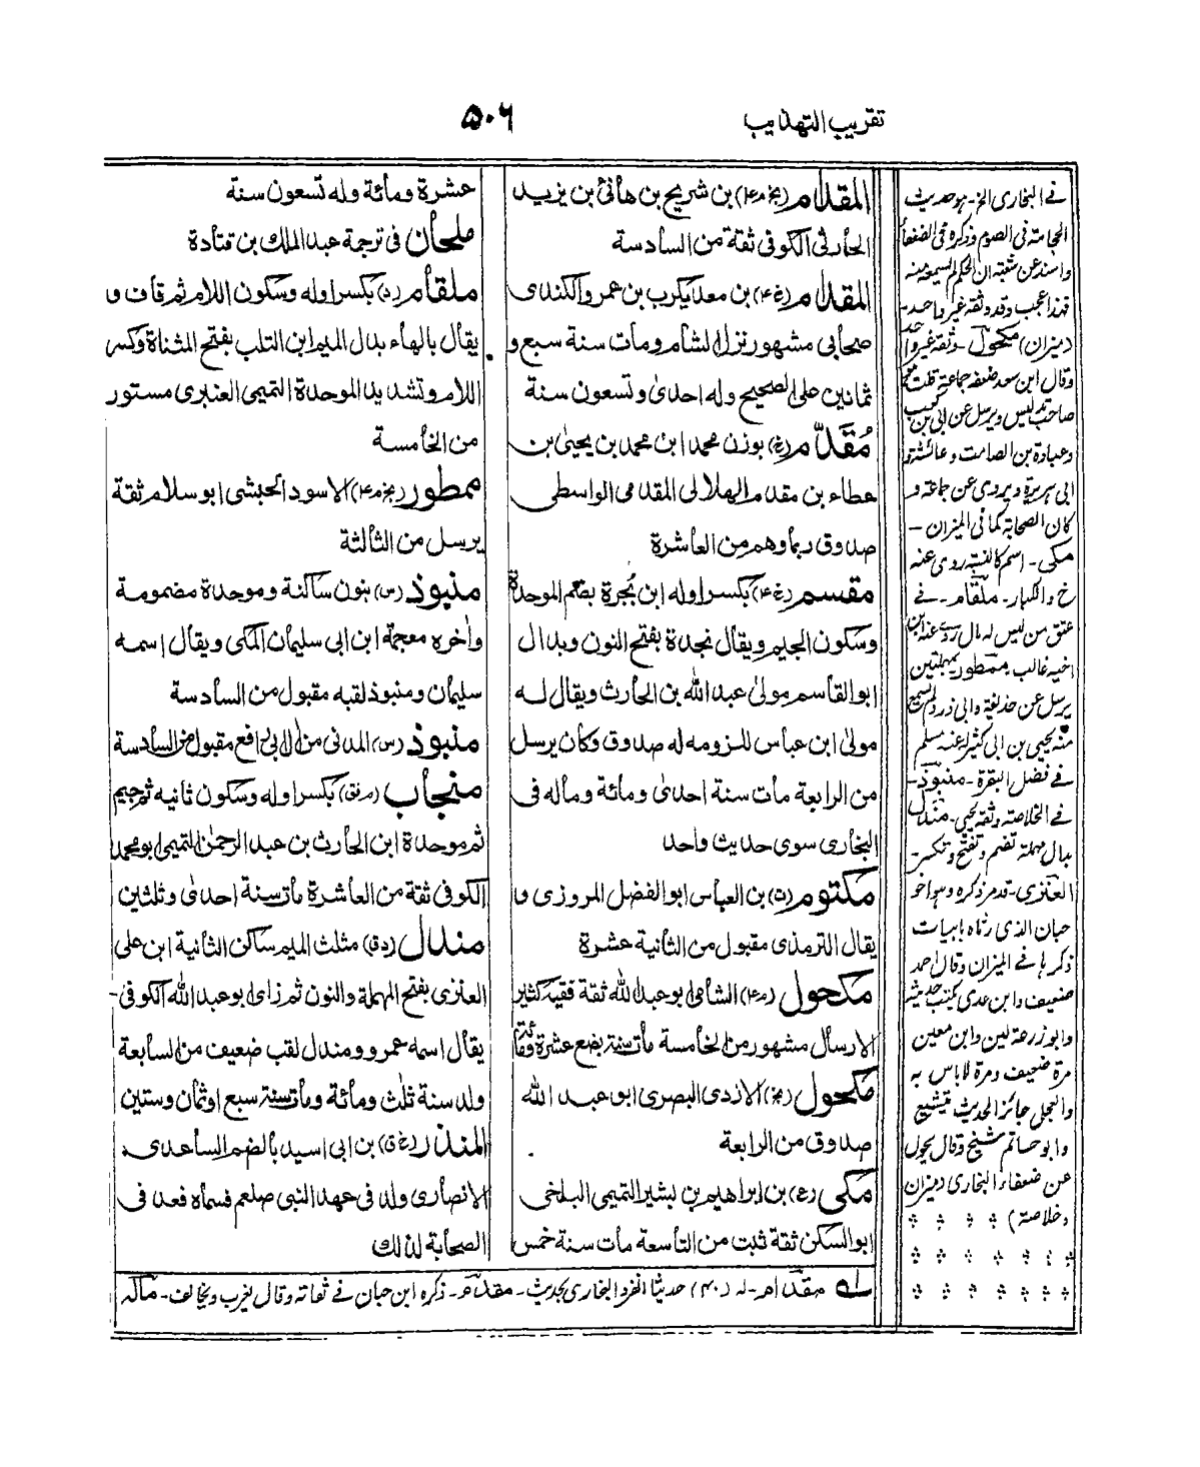 تقريب التهذيب
۵۰۶
المقدام (بخ م ۴) بن شريح بن هانئ بن يزيد
الحارثي الكوفي ثقة من السادسة
المقدام (خ ۴) بن معديكرب بن عمرو الكندي
صحابي مشهور نزل الشام ومات سنة سبع و
ثمانين على الصحيح وله احدى وتسعون سنة
مُقَدَّم (خ) بوزن محمد ابن محمد بن يحيى بن
عطاء بن مقدم الهلالي المقدمي الواسطي
صدوق ربما وهم من العاشرة
مقسم (خ ۴) بكسر اوله ابن بُجرة بضم الموحدة
وسكون الجيم ويقال نجدة بفتح النون وبدال
ابو القاسم مولى عبد الله بن الحارث ويقال له
مولى ابن عباس للزومه له صدوق وكان يرسل
من الرابعة مات سنة احدى ومائة وماله في
البخاري سوى حديث واحد
مكتوم (ت) بن العباس ابو الفضل المروزي و
يقال الترمذي مقبول من الثانية عشرة
مكحول (م ۴) الشامي ابو عبد الله ثقة فقيه كثير
الارسال مشهور من الخامسة مات سنة بضع عشرة ومائة
مكحول (بخ) الازدي البصري ابو عبد الله
صدوق من الرابعة
مكي (ع) بن ابراهيم بن بشير التميمي البلخي
ابو السكن ثقة ثبت من التاسعة مات سنة خمس
عشرة ومائة وله تسعون سنة
ملحان في ترجمة عبد الملك بن قتادة
ملقام (د) بكسر اوله وسكون اللام ثم قاف و
يقال بالهاء بدل الميم ابن التلب بفتح المثناة وكسر
اللام وتشديد الموحدة التميمي العنبري مستور
من الخامسة
ممطور (بخ م ۴) الاسود الحبشي ابو سلام ثقة
يرسل من الثالثة
منبوذ (س) بنون ساكنة وموحدة مضمومة
واخره معجمة ابن ابي سليمان المكي ويقال اسمه
سليمان ومنبوذ لقبه مقبول من السادسة
منبوذ (س) المدني من ال ابي رافع مقبول من السادسة
منجاب (م فق) بكسر اوله وسكون ثانيه ثم جيم
ثم موحدة ابن الحارث بن عبد الرحمن التميمي ابو محمد
الكوفي ثقة من العاشرة مات سنة احدى وثلثين
مندل (د ق) مثلث الميم ساكن الثانية ابن علي
العنزي بفتح المهملة والنون ثم زاي ابو عبد الله الكوفي-
يقال اسمه عمرو ومندل لقب ضعيف من السابعة
ولد سنة ثلث ومائة ومات سنة سبع او ثمان وستين
المنذر (خ ق) بن ابي اسيد بالضم الساعدي
الانصاري ولد في عهد النبي صلعم فسماه فعد في
الصحابة لذلك
في البخارى الخ - هو حديث
الحجامة في الصوم وذكره في الضعفاء
واسند عن شعبة ان الحكم لم يسمعه منه
فهذا عجب وقد وثقه غير واحد-
(ميزان) مكحول - وثقه غير واحد
وقال ابن سعد ضعفه جماعة قلت هو
صاحب تدليس ويرسل عن ابي بن كعب
وعبادة بن الصامت وعائشة و
ابى هريرة ويروى عن جماعة و
كان الصحابة كما في الميزان -
مكي - اسم كالنسبة روى عنه
خ والكبار - ملقام - في
عتق من ليس له مال روى عنه ابن
اخيه غالب ممطور بمهملتين
يرسل عن حذيفة وابى ذر ولم يسمع
منه يحيى بن ابي كثير وعنه مسلم
في فضل البقرة - منبوذ -
في الخلاصة وثقه يحيى - مندل
بدال مهملة تضم وتفتح وتكسر -
العنزى - قدم ذكره وهو اخو
حبان الذى رثاه بابيات
ذكرها في الميزان وقال احمد
ضعيف وابن عدى يكتب حديثه
وابو زرعة لين وابن معين
مرة ضعيف ومرة لا باس به
والعجلى جائز الحديث يتشيع
وابو حاتم شيخ وقال يحول
عن ضعفاء البخارى (ميزان
وخلاصة)
له مقدام - له (۴۰) حديثا انفرد البخارى بحديث - مقدم - ذكره ابن حبان في ثقاته وقال يغرب ويخالف - ماله